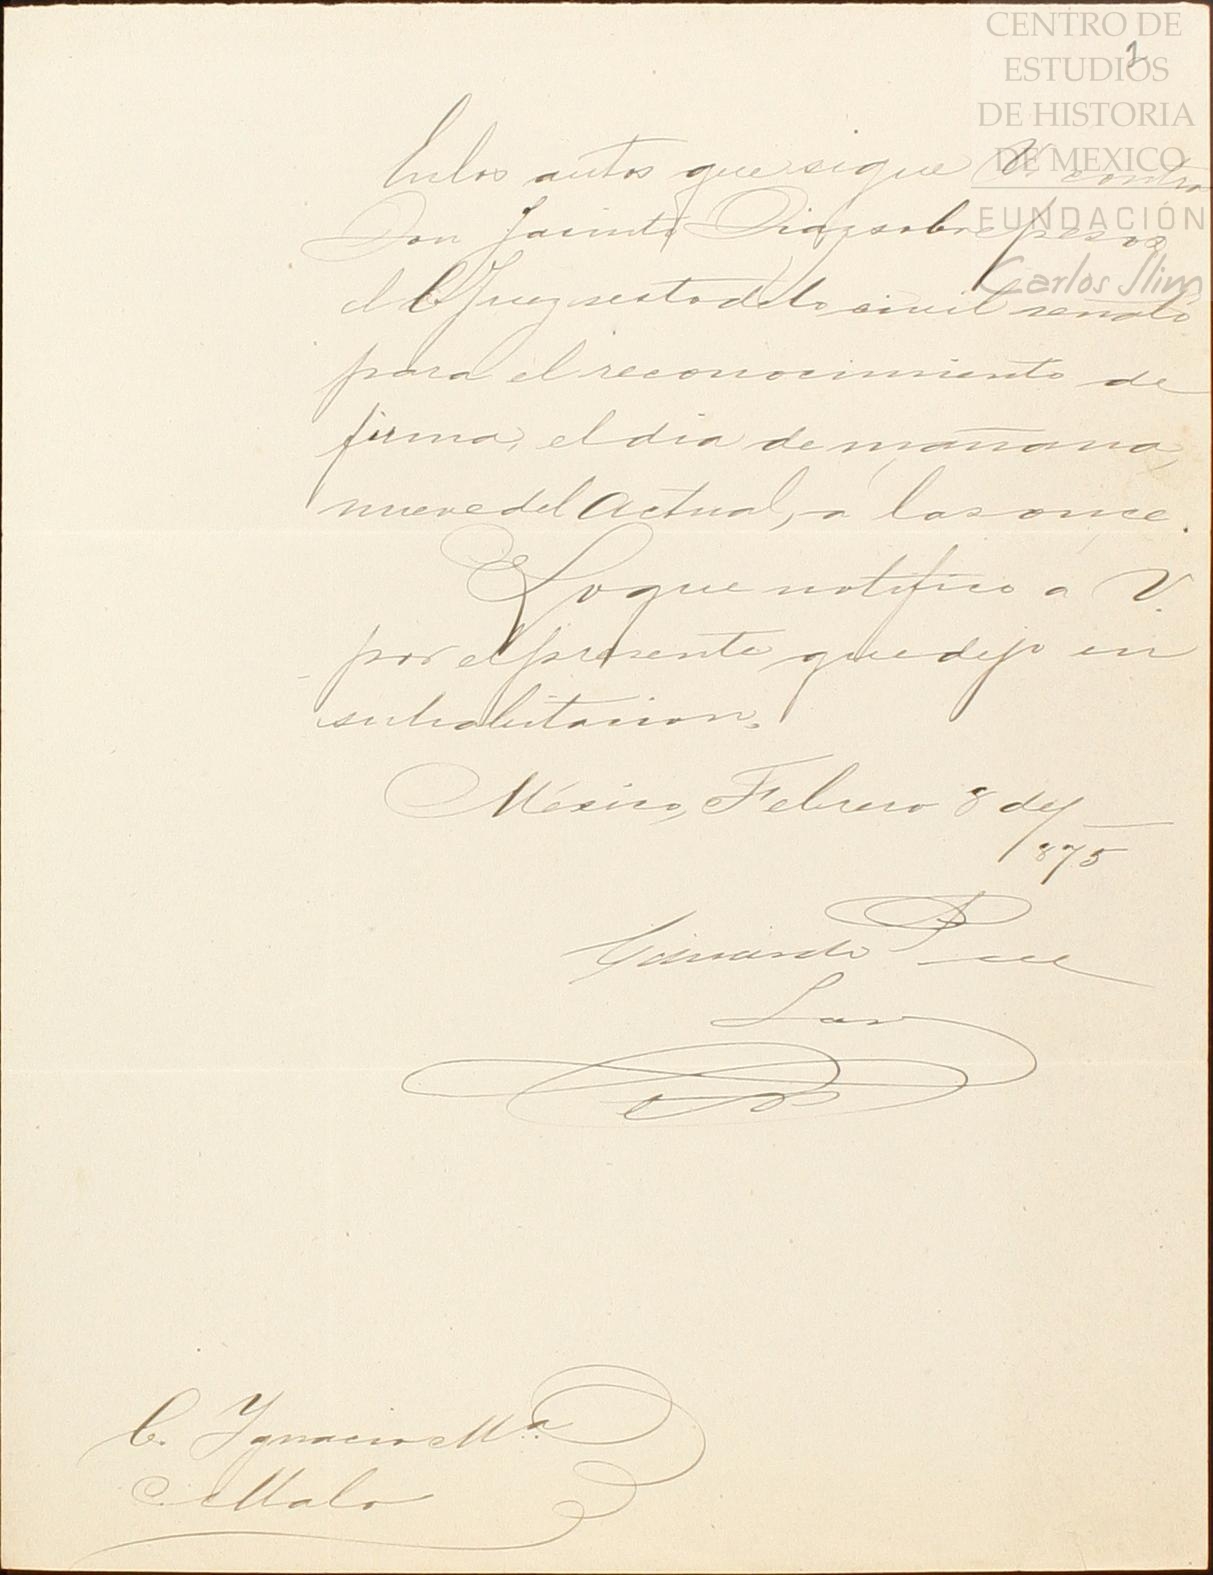 CENTRO DE
ESTUDIOS
DE HISTORIA
DE MEXICO
FUNDACIÓN
Carlos Slim
En los autos que sigue V. contra
Don Jacinto Diaz sobre pesos
el C. Juez sesto de lo civil señaló
para el reconocimiento de
firma, el dia de mañana,
nueve del actual, a las once.
Lo que notifico a V.
por el presente que dejo en
su habitacion.
México, Febrero 8 de
1875
Eduardo
C. Ygnacio Mª.
Malo